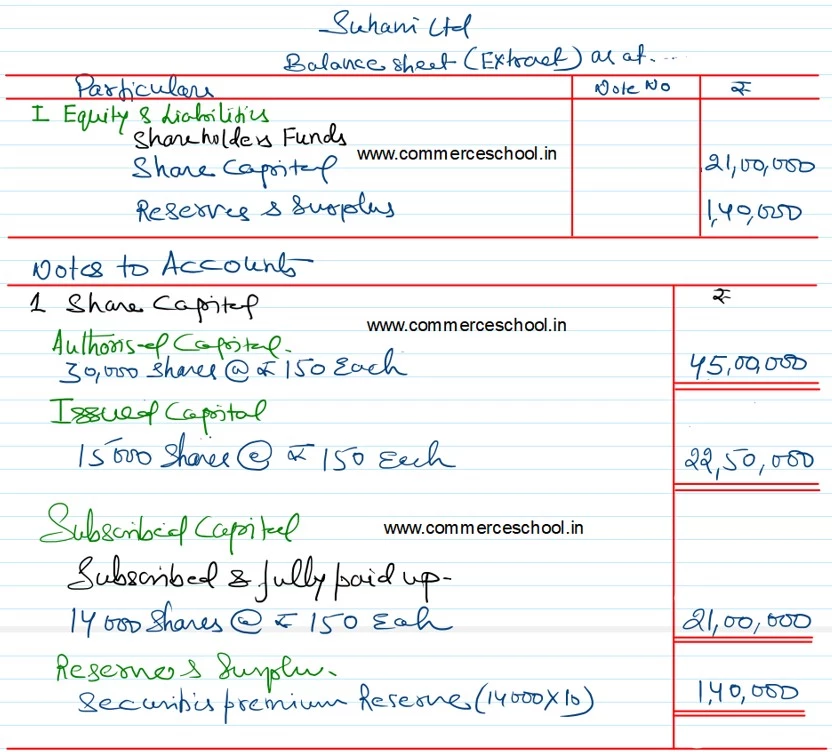 Suhani Ltd
Balance sheet (Extract) as at....
Particulars Note No ₹
I Equity & Liabilities
Shareholders Funds
www.commerceschool.in
Share Capital 21,00,000
Reserves & Surplus 1,40,000
Notes to Accounts
1 Share Capital ₹
www.commerceschool.in
Authorised Capital.
30,000 Shares @ ₹ 150 Each 45,00,000
Issued Capital
15000 Shares @ ₹ 150 Each 22,50,000
Subscribed Capital www.commerceschool.in
Subscribed & fully paid up-
14000 Shares @ ₹ 150 Each 21,00,000
Reserve & Surplus.
Securities premium Reserve (14000X10) 1,40,000